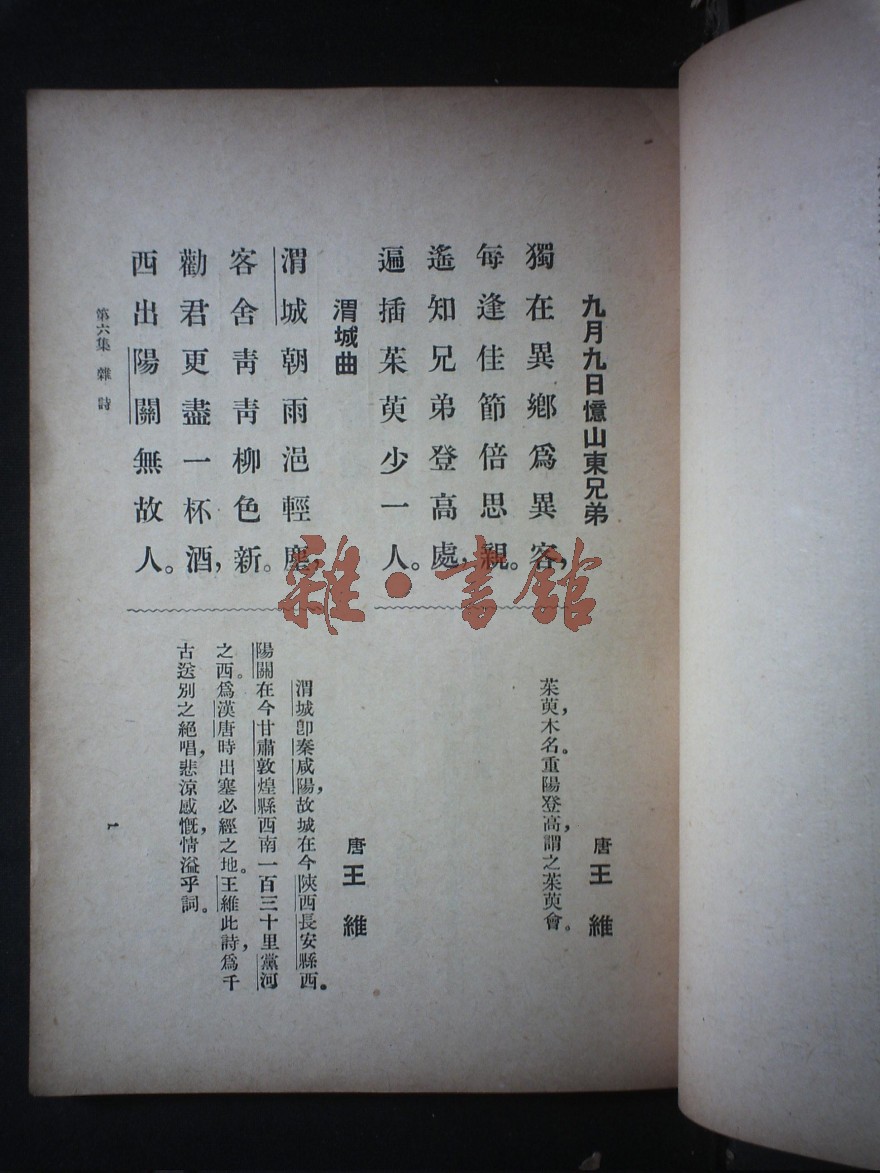 九月九日憶山東兄弟
唐 王 維
獨在異鄉爲異客，
每逢佳節倍思親。
遙知兄弟登高處，
遍插茱萸少一人。
茱萸，木名。重陽登高，謂之茱萸會。
渭城曲
唐 王 維
渭城朝雨浥輕塵，
客舍靑靑柳色新。
勸君更盡一杯酒，
西出陽關無故人。
渭城卽秦咸陽，故城在今陝西長安縣西。
陽關在今甘肅敦煌縣西南一百三十里黨河
之西。爲漢唐時出塞必經之地。王維此詩，爲千
古送別之絕唱，悲涼感慨，情溢乎詞。
第六集 雜 詩
1
雜·書館